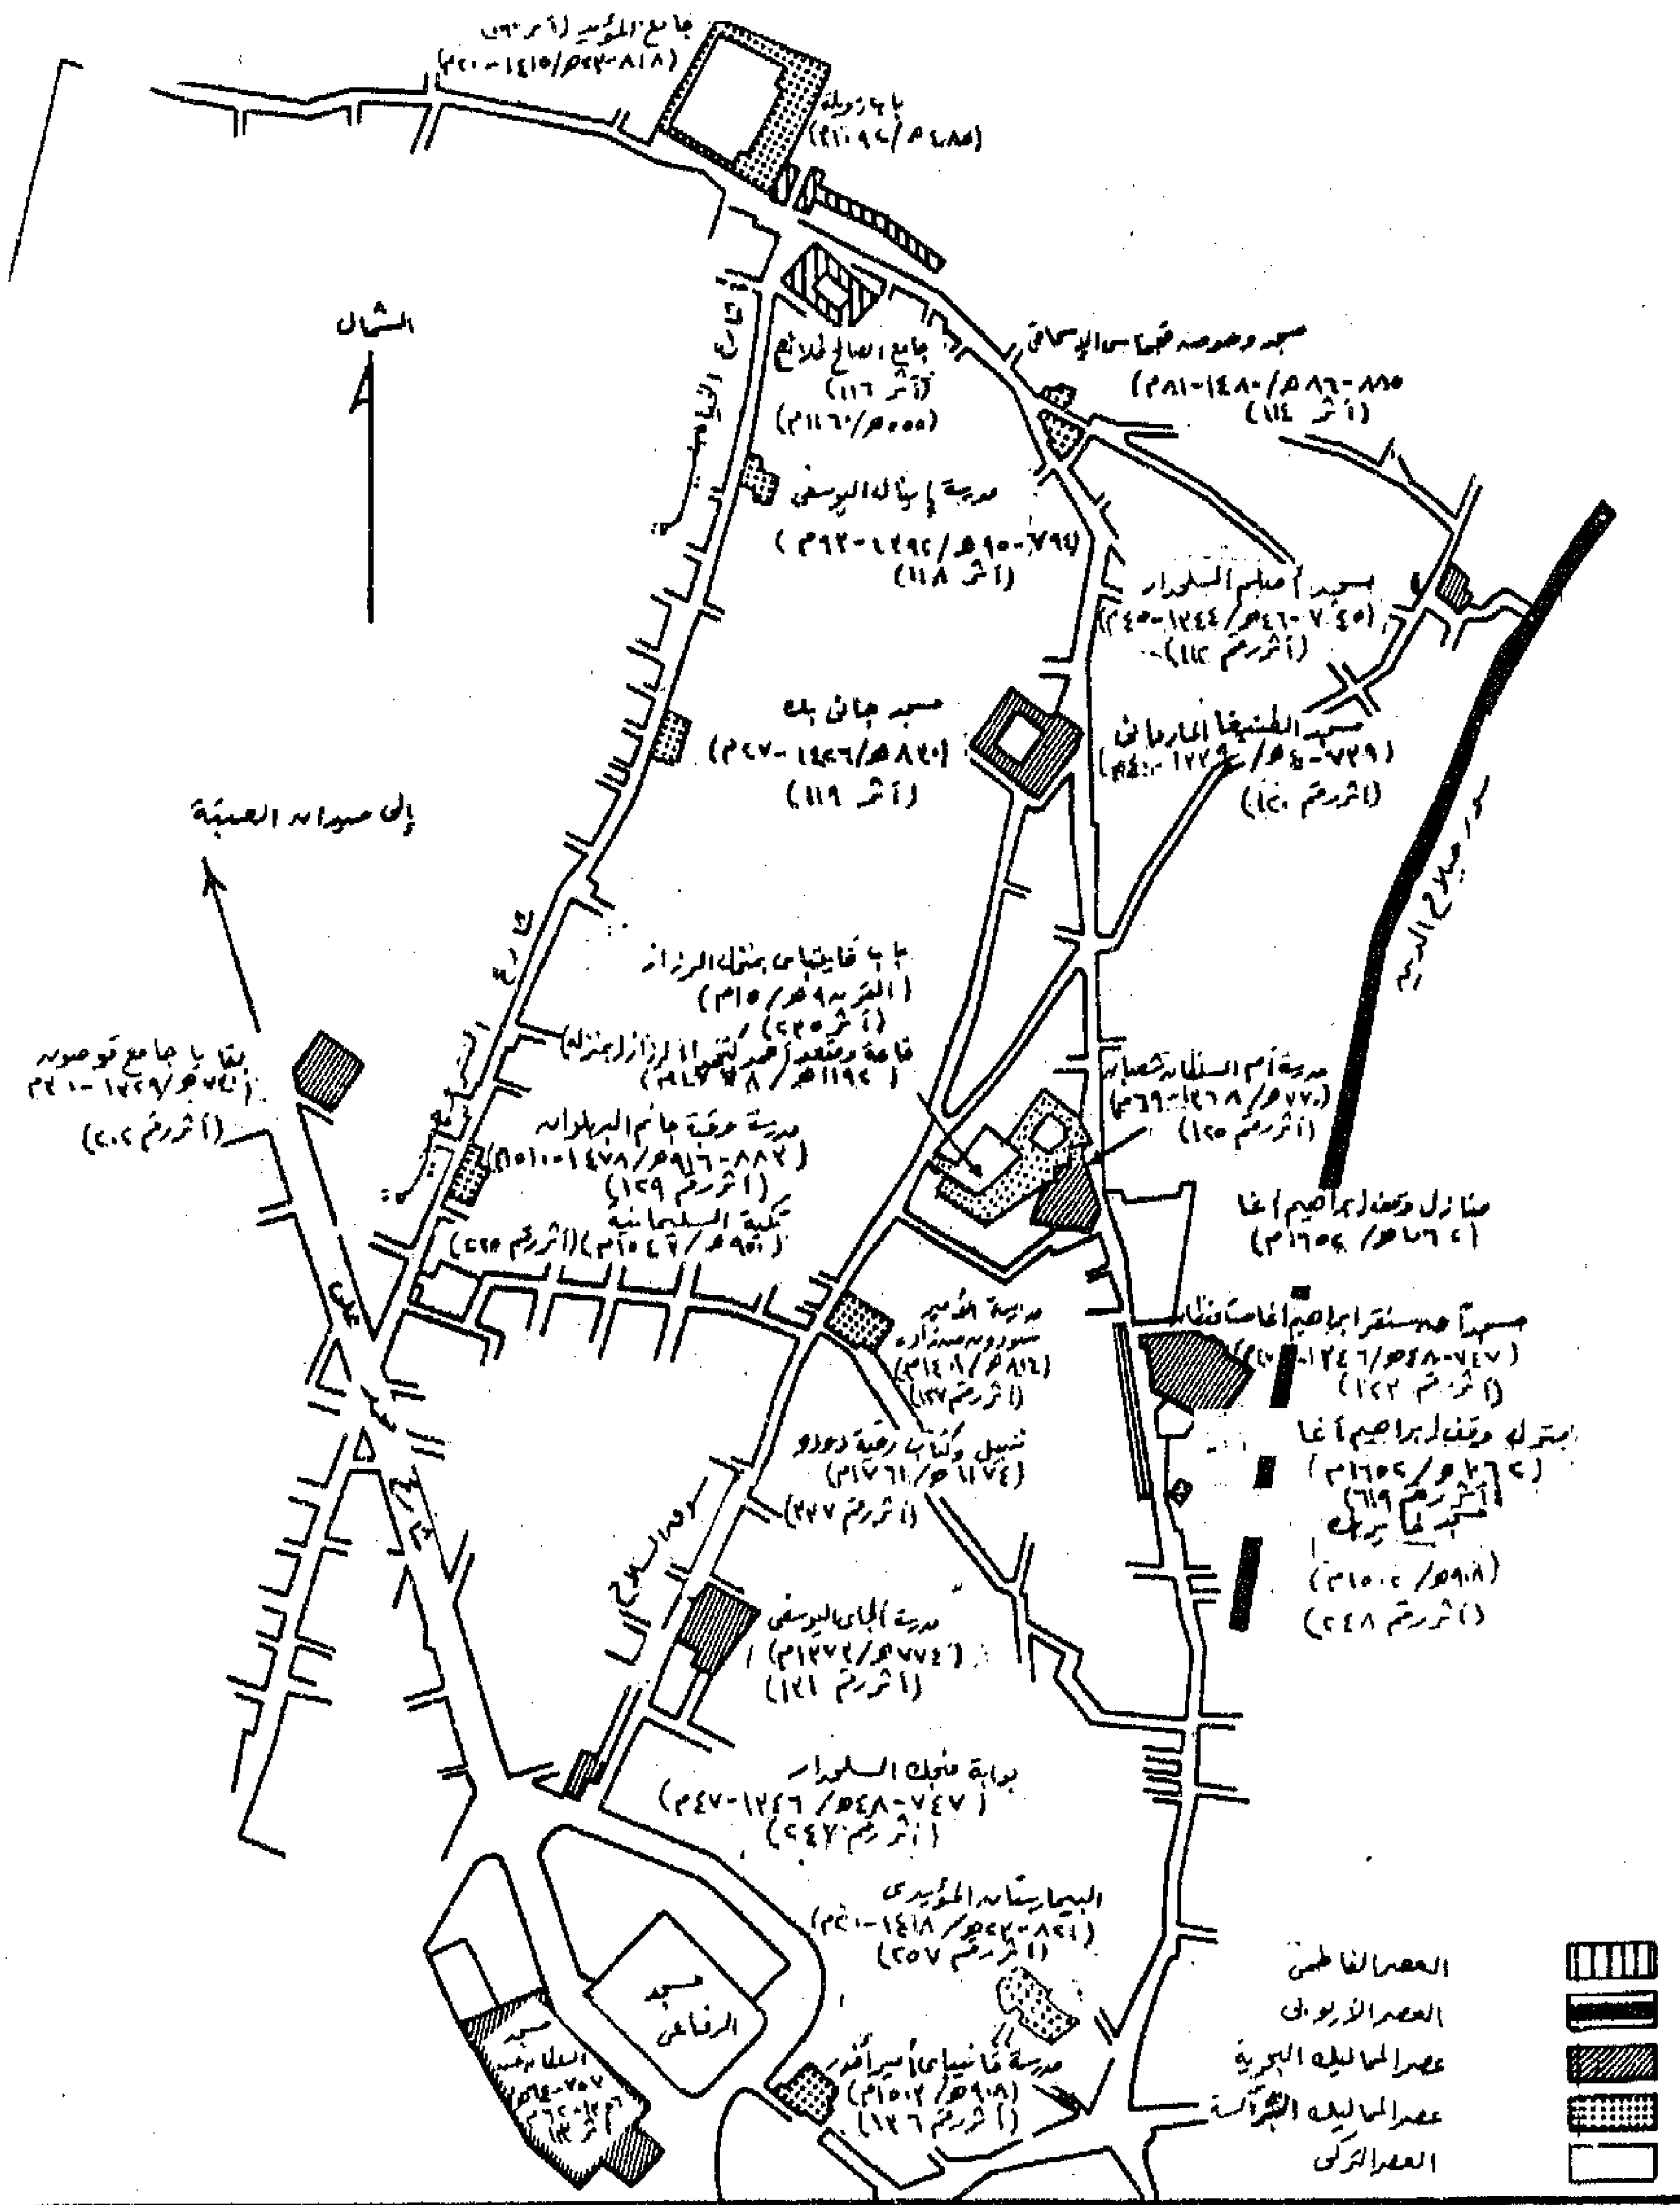 جامع المؤيد (أثر ١٩٠)
(٨١٨-٢٣هـ/١٤١٥-٢٠م)
باب زويلة
(٤٨٥هـ/١٠٩٢م)
الشمال
شارع الخيامية
جامع الصالح طلائع
(أثر ١١٦)
(٥٥٥هـ/١١٦٠م)
مسجد وحوض قجماس الإسحاقى
(٨٨٥-٨٦هـ/١٤٨٠-٨١م)
(أثر ١١٤)
مدرسة إينال اليوسفى
(٧٩٤-٩٥هـ/١٣٩٢-٩٣م)
(أثر ١١٨)
مسجد أصلم السلحدار
(٧٤٥-٤٦هـ/١٣٤٤-٤٥م)
(أثر رقم ١١٢)
مسجد جانى بك
(٨٣٠هـ/١٤٢٦-٢٧م)
(أثر ١١٩)
مسجد الطنبغا الماردانى
(٧٣٩-٤٠هـ/١٣٣٩-٤٠م)
(أثر رقم ١٢٠)
سور صلاح الدين
إلى ميدان العتبة
شارع السروجية
باب قايتباى بمنزل الرزاز
(القرن ٩هـ/١٥م)
(أثر ٢٣٥)
قاعة ومقعد أحمد كتخدا الرزاز (بمنزله)
(١١٩٢هـ/١٧٧٨م)
بقايا جامع قوصون
(٧٣٠هـ/١٣٢٩-٣٠م)
(أثر رقم ٢٠٢)
مدرسة أم السلطان شعبان
(٧٧٠هـ/١٣٦٨-٦٩م)
(أثر رقم ١٢٥)
مدرسة وقبة جانم البهلوان
(٨٨٣-٩١٦هـ/١٤٧٨-١٥١٠م)
(أثر رقم ١٢٩)
تكية السليمانية
(٩٥٠هـ/١٥٤٣م)(أثر رقم ٢٢٥)
منازل وقف إبراهيم أغا
(١٠٦٢هـ/١٦٥٢م)
مدرسة الأمير
سودون من زاده
(٨١٤هـ/١٤٠٨م)
(أثر رقم ١٢٧)
مسجد آق سنقر إبراهيم أغا مستحفظان
(٧٤٧-٤٨هـ/١٣٤٦-٤٧م)
(أثر رقم ١٢٣)
شارع محمد على
سبيل وكتاب رقية دودو
(١١٧٤هـ/١٧٦١م)
(أثر رقم ٣٣٧)
منزل وقف إبراهيم أغا
(١٠٦٢هـ/١٦٥٢م)
(أثر رقم ٦١٩)
مسجد خاير بك
(٩٠٨هـ/١٥٠٢م)
(أثر رقم ٢٤٨)
سوق السلاح
مدرسة ألجاى اليوسفى
(٧٧٤هـ/١٣٧٣م)
(أثر رقم ١٣١)
بوابة منجك السلحدار
(٧٤٧-٤٨هـ/١٣٤٦-٤٧م)
(أثر رقم ٢٤٧)
البيمارستان المؤيدى
(٨٢١-٢٣هـ/١٤١٨-٢٠م)
(أثر رقم ٢٥٧)
مسجد
الرفاعى
مسجد
السلطان حسن
٧٥٧-٦٤هـ
مدرسة قانيباى أمير أخور
(٩٠٨هـ/١٥٠٣م)
(أثر رقم ١٣٦)
العصر الفاطمى
العصر الأيوبى
عصر المماليك البحرية
عصر المماليك الجراكسة
العصر التركى